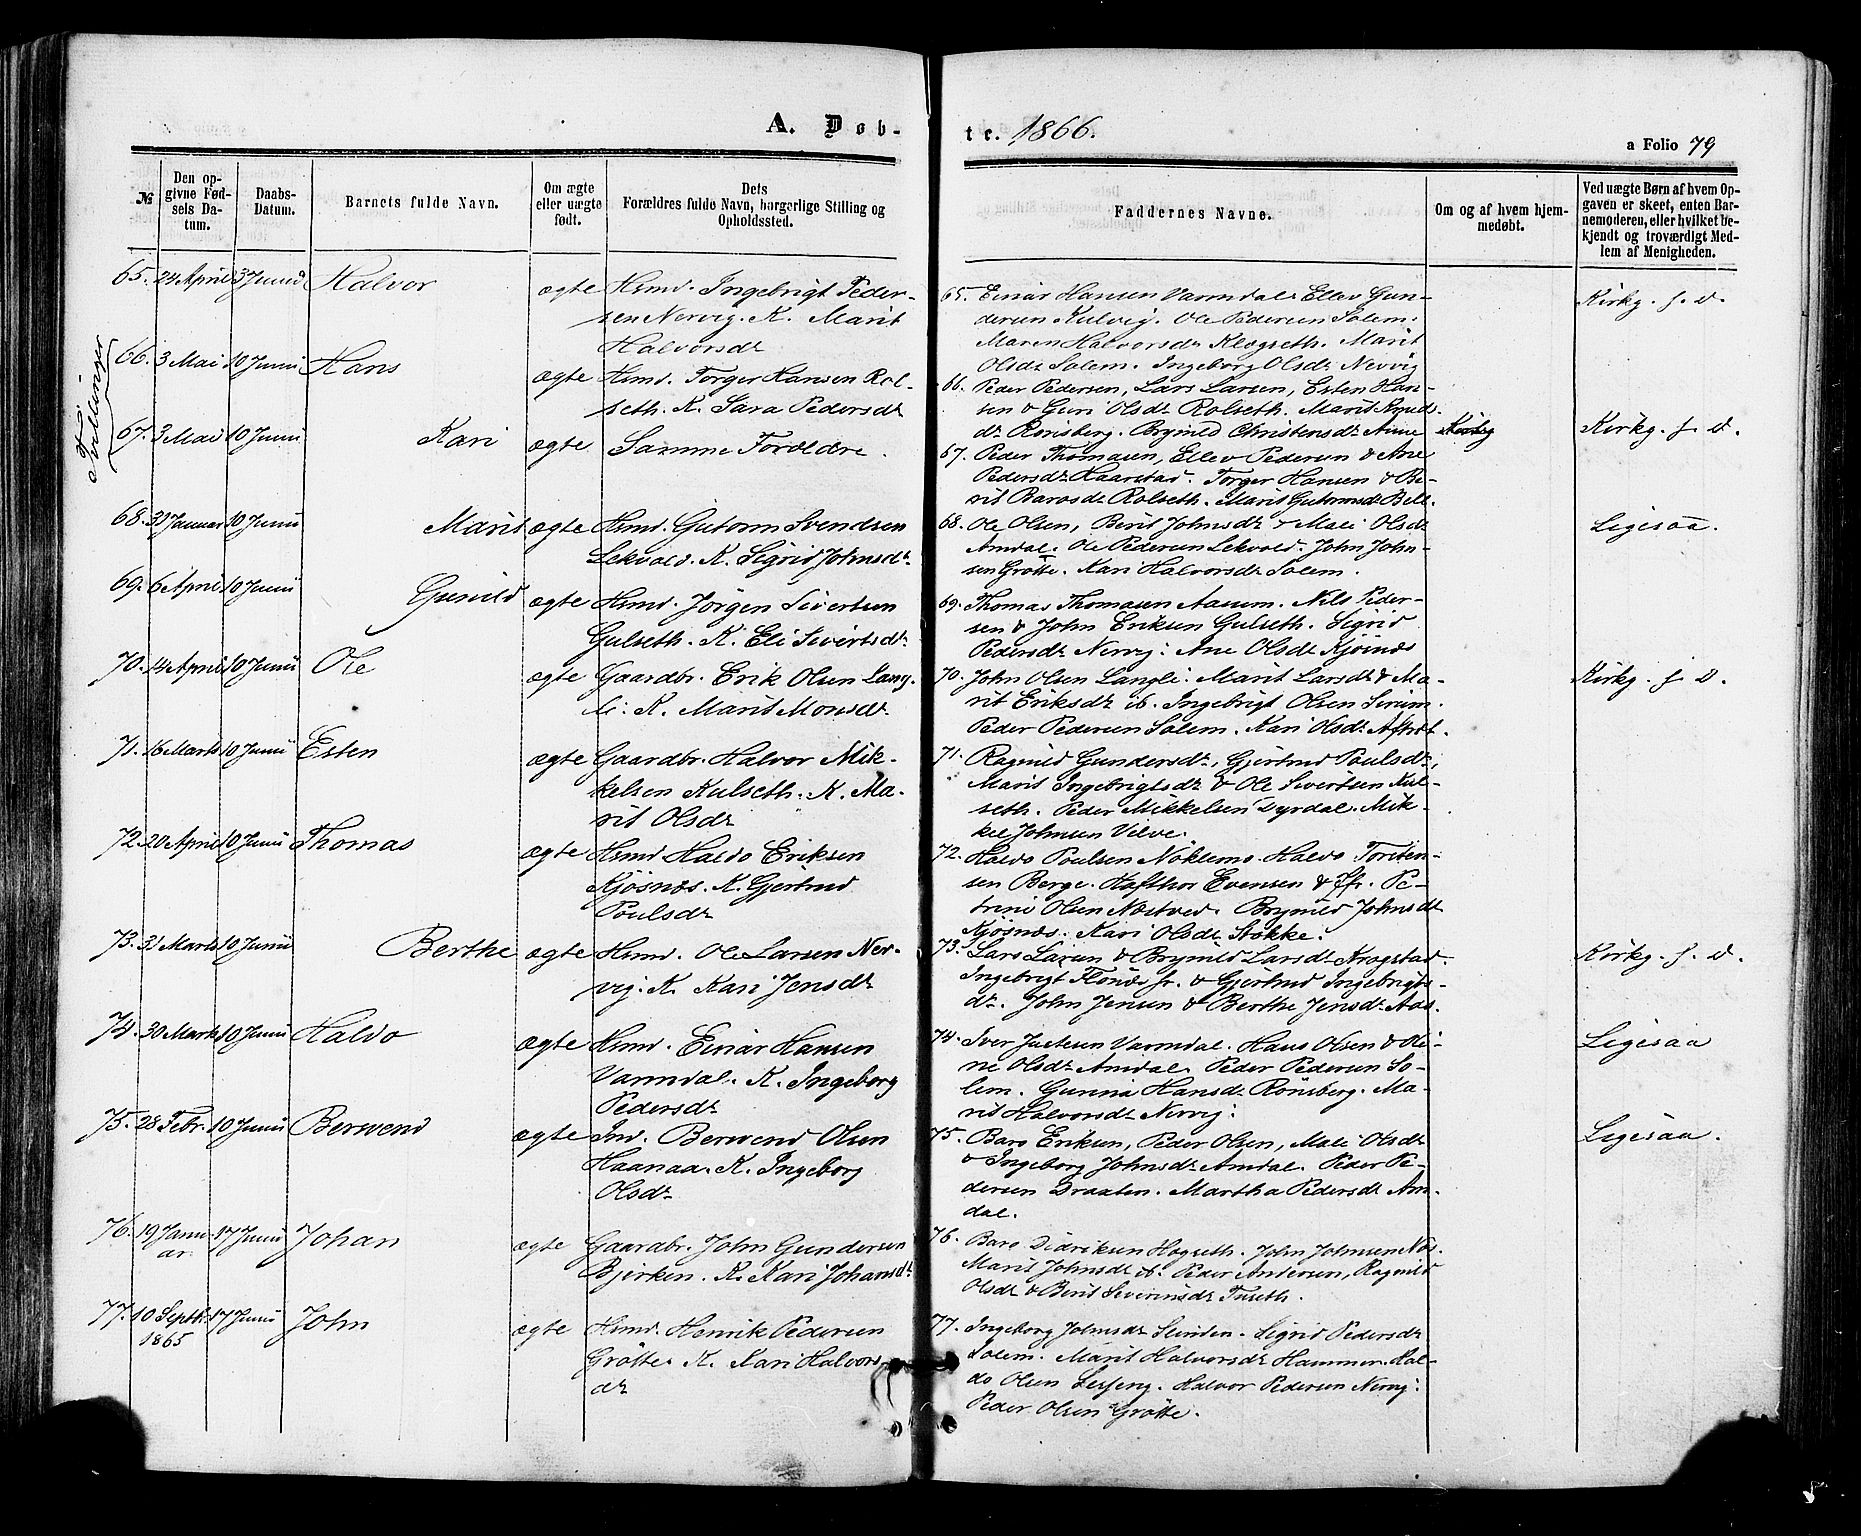 A. Døb-
te. 1866.
a Folio 79
№
Den op-
givne Fød-
sels Da-
tum.
Daabs-
Datum.
Barnets fulde Navn.
Om ægte
eller uægte
født.
Dets
Forældres fulde Navn, borgerlige Stilling og
Opholdssted.
Faddernes Navne.
Om og af hvem hjem-
medøbt.
Ved uægte Børn af hvem Op-
gaven er skeet, enten Bar-
nemoderen, eller hvilket be-
kjendt og troværdigt Med-
lem af Menigheden.
65. 24 April 3 Junii Halvor ægte Hsmd. Ingebrigt Peder-
sen Nervig. K. Marit
Halvorsdr
65. Einar Hansen Varmdal. Ellev Gun-
dersen Kulvig. Ole Pedersen Solem.
Maren Halvorsdr Klogseth. Marit
Olsdr Solem. Ingeborg Olsdr Nervig
Kirkg. f. d.
Tvillinger
66. 3 Mai 10 Junii Hans ægte Hsmd. Torger Hansen Rol-
seth. K. Sara Pedersdr
66. Peder Pedersen, Lars Larsen, Esten Han-
sen & Guri Olsdr Rolseth. Marit Knuds-
dr Rønsberg. Brynild Christensdr Aune
67. 3 Mai 10 Junii Kari ægte Samme Forældre.
67. Peder Thomasen, Ellev Pedersen & Ane
Pedersdr Haarstad. Torger Hansen & Be-
rit Barosdr Rolseth. Marit Gutormsdr Bell
Kirkg. f. d.
68. 31 Januar 10 Junii Marit ægte Hsmd. Gutorm Svendsen
Lekvold. K. Sigrid Johnsdr.
68. Ole Olsen, Berit Johnsdr & Mali Olsdr
Amdal. Ole Pedersen Lekvold. John John-
sen Grøtte. Kari Halvorsdr Solem.
Ligesaa.
69. 6 April 10 Junii Gunild ægte Hsmd. Jörgen Sivertsen
Gulseth. K. Eli Sivertsdr
69. Thomas Thomasen Aasum. Nils Peder-
sen & John Eriksen Gulseth. Sigrid
Pedersdr Nervig. Ane Olsdr Kjösnæs
70. 14 April 10 Junii Ole ægte Gaardbr. Erik Olsen Lang-
li. K. Marit Monsdr
70. John Olsen Langli. Marit Larsdr & Ma-
rit Eriksdr ib. Ingebrigt Olsen
Peder Pedersen Solem. Kari Olsdr
Kirkg. f. d.
71. 16 Marts 10 Junii Esten ægte Gaardbr. Halvor Mik-
kelsen Kulseth. K. Ma-
rit Olsdr
71. Ragnild Gundersdr, Gjertrud Poulsdr,
Marit Ingebrigtsdr & Ole Sivertsen Kul-
seth. Peder Mikkelsen Dyrdal. Mik-
kel Johnsen Velve.
72. 20 April 10 Junii Thomas ægte Hsmd Haldo Eriksen
Kjösnæs. K. Gjertrud
Poulsdr
72. Haldo Poulsen Noklemo. Haldo Torsten-
sen Berge. Hafthor Evensen & Jfr. Pe-
trine Olsen Næstved. Brynild Johnsdr
Kjösnæs. Kari Olsdr Stokke.
73. 31 Marts 10 Junii Berthe ægte Hsmd. Ole Larsen Ner-
vig. K. Kari Jensdr
73. Lars Larsen & Brynild Larsdr Krogstad.
Ingebrigt Flönæs jr. & Gjertrud Ingebrigts-
dr. John Jensen & Berthe Jensdr Aas.
Kirkg. f. d.
74. 30 Marts 10 Junii Haldo ægte Hsmd. Einar Hansen
Varmdal. K. Ingeborg
Pedersdr
74. Iver Justesen Varmdal. Hans Olsen & Oli-
ne Olsdr Amdal. Peder Pedersen So-
lem. Gunnia Hansdr Rønsberg. Ma-
rit Halvorsdr Nervig.
Ligesaa
75. 28 Febr. 10 Junii Berwend ægte Ind. Berwend Olsen
Haanaa. K. Ingeborg
Olsdr
75. Baro Eriksen, Peder Olsen, Mali Olsdr
& Ingeborg Johnsdr Amdal. Peder Pe-
dersen Draaten. Martha Pedersdr Am-
dal.
Ligesaa.
76. 19 Janu-
ar 17 Junii Johan ægte Gaardbr. John Gundersen
Bjerken. K. Kari Johansdr
76. Baro Didriksen Hogseth. John Johnsen Næs.
Marit Johnsdr ib. Peder Andersen, Ragnild
Olsdr & Berit Severinsdr Tuseth.
77. 10 Septbr.
1865 17 Junii John ægte Hsmd. Henrik Pedersen
Grøtte. K. Kari Halvors-
dr
77. Ingeborg Johnsdr Slinden. Sigrid Pedersdr
Solem. Marit Halvorsdr Hammer. Hal-
do Olsen. Halvor Pedersen Nervig.
Peder Olsen Grøtte.